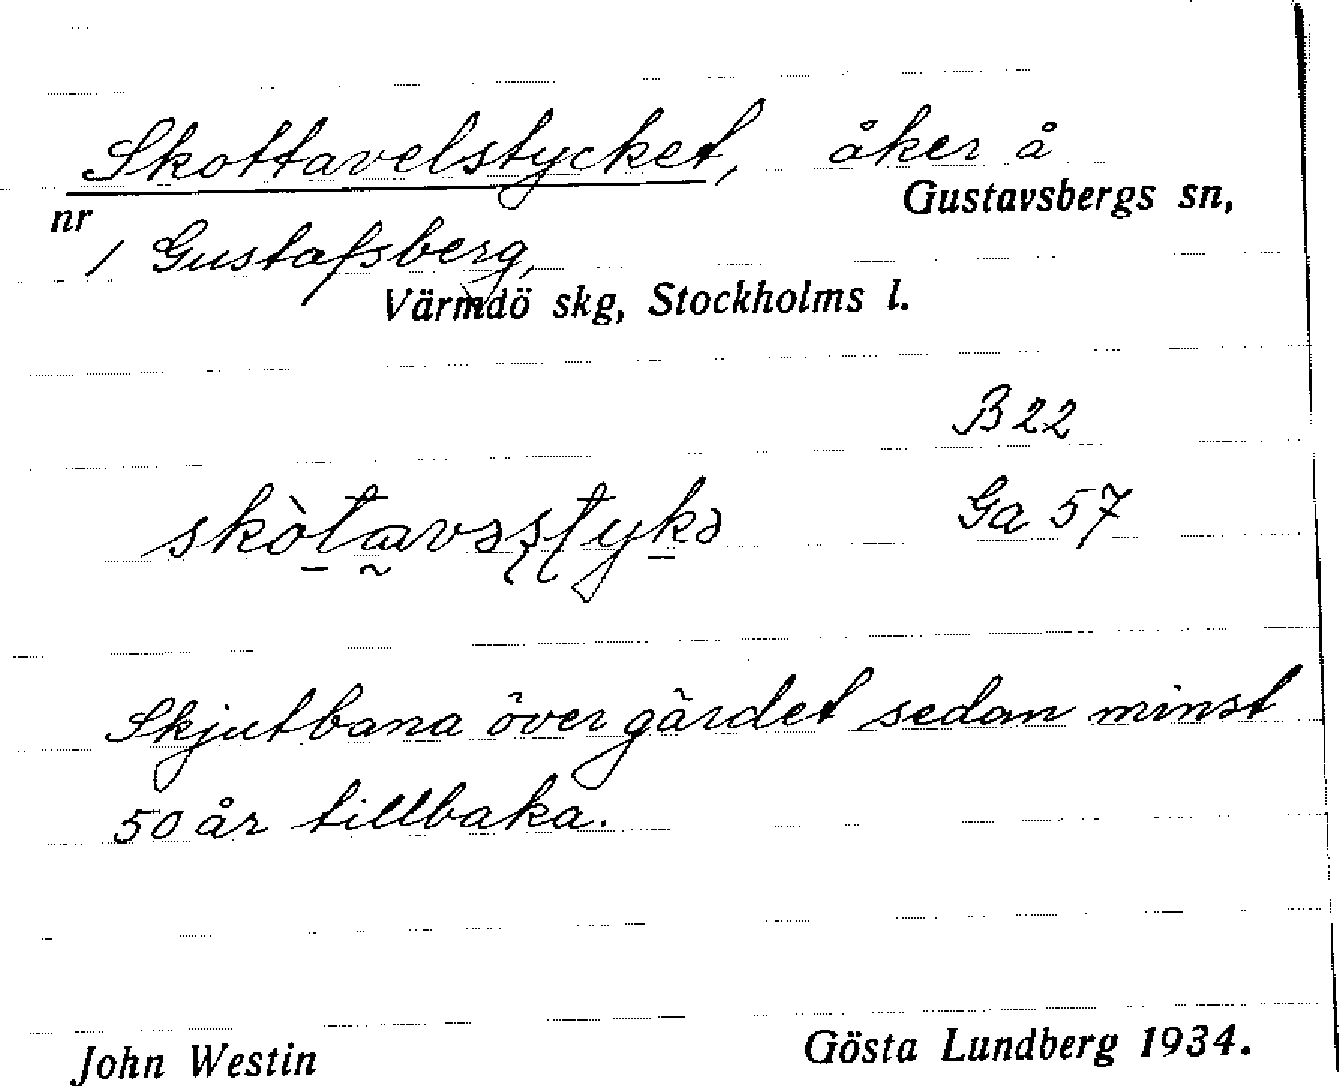 Skottavelstycket, åker å
Gustavsbergs sn,
nr
1 Gustafsberg,
Värmdö skg, Stockholms l.
B 22
skòtavəsstykə
Ga 57
Skjutbana över gärdet sedan minst
50 år tillbaka.
John Westin
Gösta Lundberg 1934.